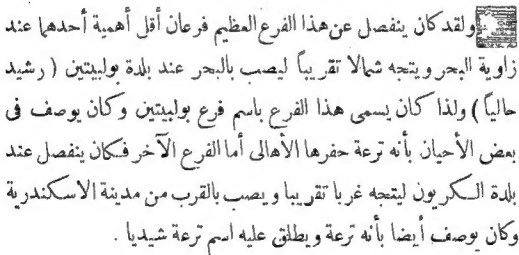 ولقد كان ينفصل عن هذا الفرع العظيم فرعان أقل أهمية أحدهما عند
زاوية البحر ويتجه شمالا تقريباً ليصب بالبحر عند بلدة بولبيتين ( رشيد
حالياً ) ولذا كان يسمى هذا الفرع باسم فرع بولبيتين وكان يوصف فى
بعض الأحيان بأنه ترعة حفرها الأهالى أما الفرع الآخر فكان ينفصل عند
بلدة الكريون ليتجه غربا تقريبا ويصب بالقرب من مدينة الاسكندرية
وكان يوصف أيضا بأنه ترعة ويطلق عليه اسم ترعة شيديا .